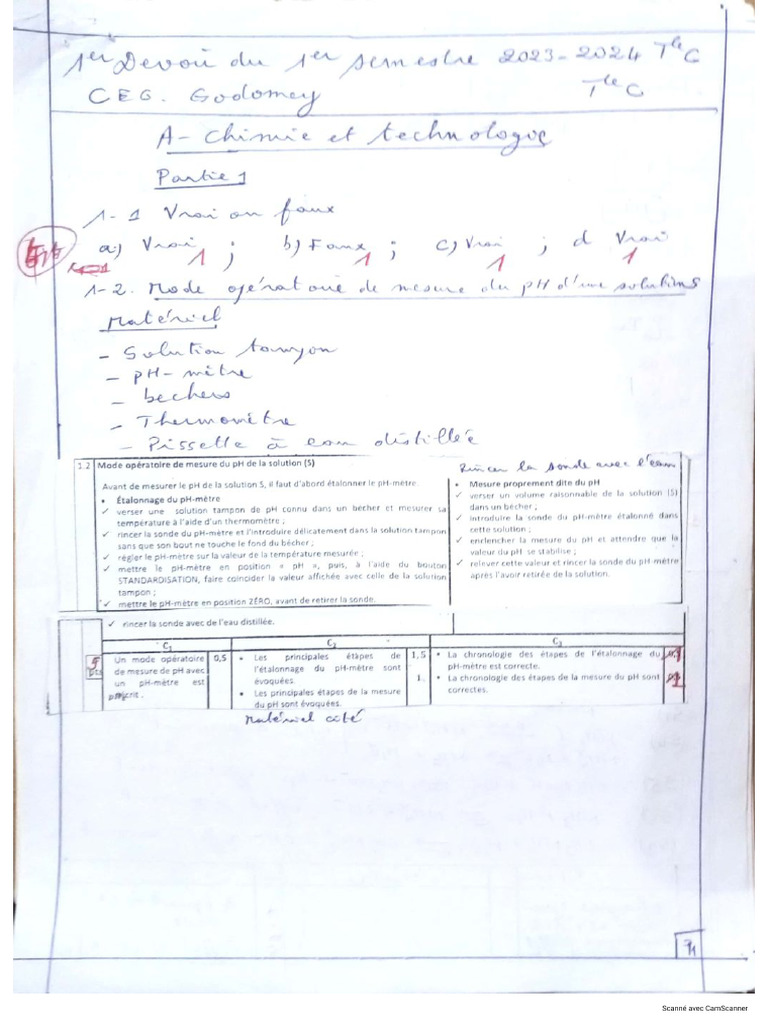 1er Devoir du 1er semestre 2023-2024 Tle C
CEG. Godomey Tle C
A- Chimie et technologie
Partie 1
1-1 Vrai ou faux
a) Vrai 1 ; b) Faux 1 ; c) Vrai 1 ; d Vrai 1
1-2. Mode opératoire de mesure du pH d'une solutions
Matériel
- Solution tampon
- pH-mètre
- bechers
- Thermomètre
- Pissette à eau distillée
1.2 Mode opératoire de mesure du pH de la solution (S)
Avant de mesurer le pH de la solution S, il faut d'abord étalonner le pH-mètre.
• Étalonnage du pH-mètre
✓ verser une solution tampon de pH connu dans un bécher et mesurer sa
température à l'aide d'un thermomètre ;
✓ rincer la sonde du pH-mètre et l'introduire délicatement dans la solution tampon
sans que son bout ne touche le fond du bécher ;
✓ régler le pH-mètre sur la valeur de la température mesurée ;
✓ mettre le pH-mètre en position « pH », puis, à l'aide du bouton
STANDARDISATION, faire coincider la valeur affichée avec celle de la solution
tampon ;
✓ mettre le pH-mètre en position ZÉRO, avant de retirer la sonde.
Rincer la sonde avec l'eau
• Mesure proprement dite du pH
✓ verser un volume raisonnable de la solution (S)
dans un bécher ;
✓ introduire la sonde du pH-mètre étalonné dans
cette solution ;
✓ enclencher la mesure du pH et attendre que la
valeur du pH se stabilise ;
✓ relever cette valeur et rincer la sonde du pH-mètre
après l'avoir retirée de la solution.
✓ rincer la sonde avec de l'eau distillée.
C1 C2 C3
5 pts
Un mode opératoire
de mesure de pH avec
un pH-mètre est
proscrit .
0,5
• Les principales étapes de
l'étalonnage du pH-mètre sont
évoquées.
• Les principales étapes de la mesure
du pH sont évoquées.
1,5
1.
• La chronologie des étapes de l'étalonnage du
pH-mètre est correcte.
• La chronologie des étapes de la mesure du pH sont
correctes.
1
1
Matériel cité
Scanné avec CamScanner